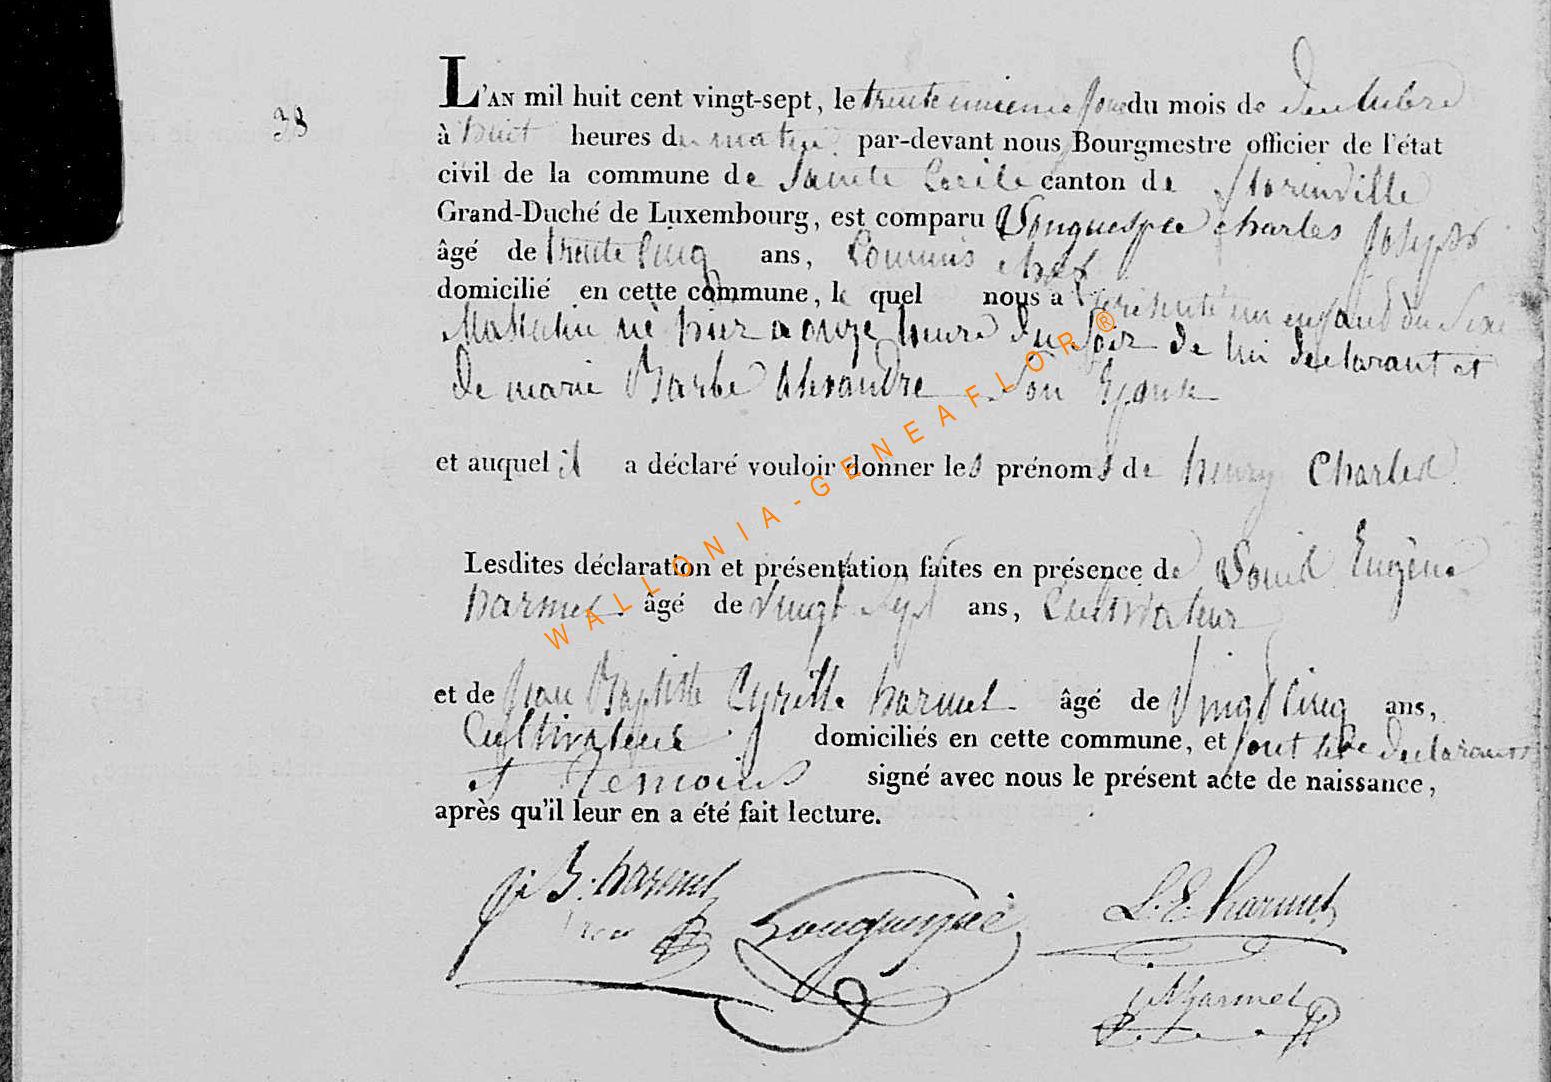 38
L'AN mil huit cent vingt-sept, le trente unieme jour du mois de decembre
à huit heures du matin par-devant nous Bourgmestre officier de l'état
civil de la commune de Sainte Cecile canton de florenville
Grand-Duché de Luxembourg, est comparu Longuespée charles joseph
âgé de trente cinq ans, Commis chef
domicilié en cette commune, le quel nous a présenté un enfant du sexe
Masculin né hier a onze heure du soir de lui declarant et
de marie Barbe Alexandre son Epouse
et auquel il a déclaré vouloir donner les prénoms de henry Charles
Lesdites déclaration et présentation faites en présence de Louis Eugène
harmel âgé de vingt sept ans, Cultivateur
et de jean Baptiste Cyrille harmel âgé de vingt cinq ans,
Cultivateur domiciliés en cette commune, et sont les declarants
et Temoins signé avec nous le présent acte de naissance,
après qu'il leur en a été fait lecture.
J: B: harmel
Longuespée
L. E. harmel
harmel
WALLONIA-GENEAFLOR®